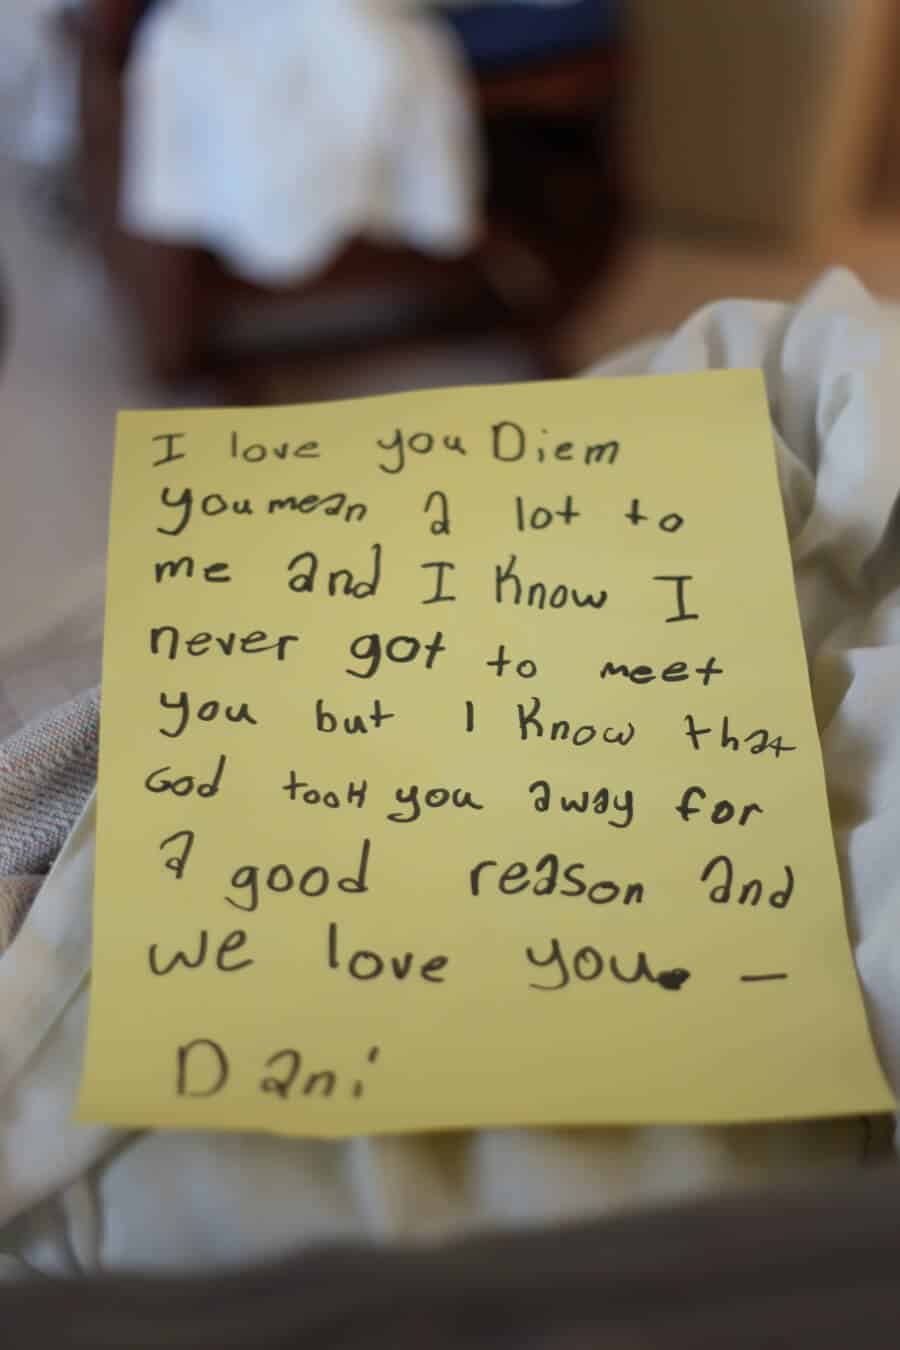 I love you Diem
you mean a lot to
me and I Know I
never got to meet
you but I Know that
God took you away for
a good reason and
we love you. –
Dani